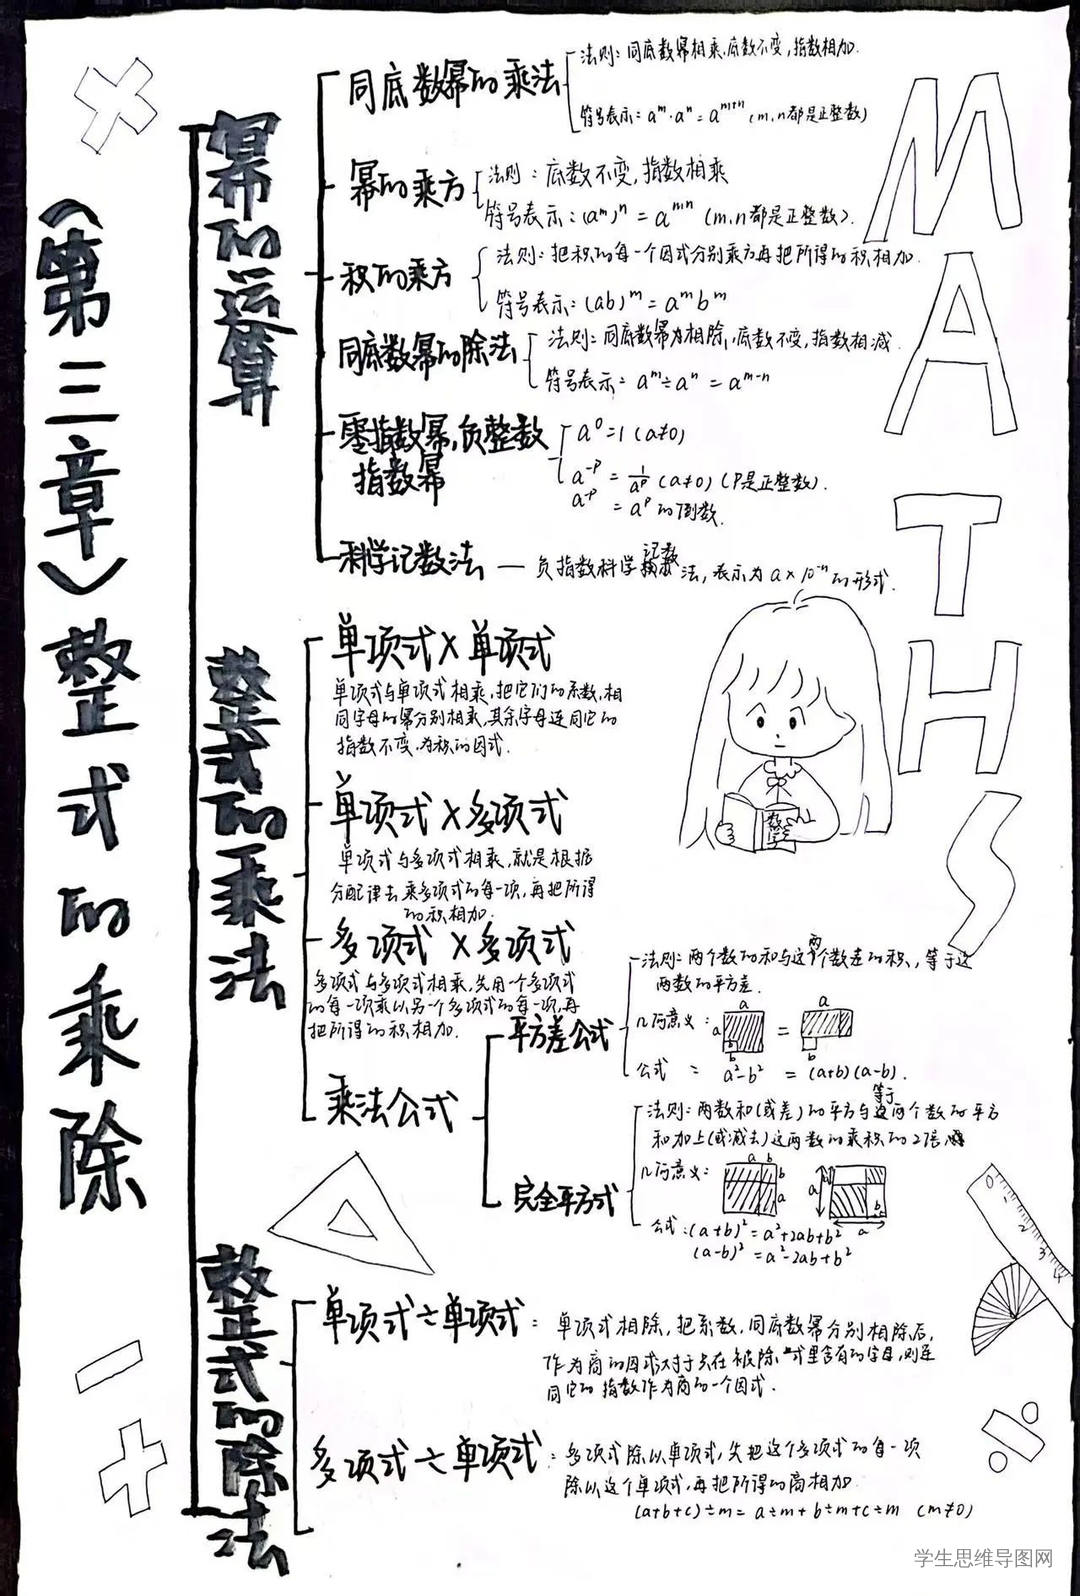 (第三章)整式的乘除
幂的运算
同底数幂的乘法
法则:同底数幂相乘,底数不变,指数相加.
符号表示:aᵐ·aⁿ=aᵐ⁺ⁿ (m,n都是正整数)
幂的乘方
法则:底数不变,指数相乘
符号表示:(aᵐ)ⁿ=aᵐⁿ (m,n都是正整数).
积的乘方
法则:把积的每一个因式分别乘方再把所得的积相加.
符号表示:(ab)ᵐ=aᵐbᵐ
同底数幂的除法
法则:同底数幂相除,底数不变,指数相减.
符号表示:aᵐ÷aⁿ=aᵐ⁻ⁿ
零指数幂,负整数
指数幂
a⁰=1 (a≠0)
a⁻ᵖ=1/aᵖ (a≠0) (P是正整数).
a⁻ᵖ=aᵖ的倒数.
科学记数法
— 负指数科学记数法,表示为a×10⁻ⁿ的形式.
整式的乘法
单项式×单项式
单项式与单项式相乘,把它们的系数,相
同字母的幂分别相乘,其余字母连同它的
指数不变,为积的因式.
单项式×多项式
单项式与多项式相乘,就是根据
分配律去乘多项式的每一项,再把所得
的积相加.
多项式×多项式
多项式与多项式相乘,先用一个多项式
的每一项乘以另一个多项式的每一项,再
把所得的积相加.
乘法公式
平方差公式
法则:两个数的和与这两个数差的积,等于这
两数的平方差.
几何意义:
a
a
b
b
=
a
b
公式= a²-b²=(a+b)(a-b).
完全平方式
法则:两数和(或差)的平方等于这两个数的平方
和加上(或减去)这两数的乘积的2倍
几何意义:
a b
b
a
a
b
a
公式:(a+b)²=a²+2ab+b²
(a-b)²=a²-2ab+b²
整式的除法
单项式÷单项式:
单项式相除,把系数,同底数幂分别相除后,
作为商的因式对于只在被除式里含有的字母,则连
同它的指数作为商的一个因式.
多项式÷单项式:
多项式除以单项式,先把这个多项式的每一项
除以这个单项式,再把所得的商相加.
(a+b+c)÷m=a÷m+b÷m+c÷m (m≠0)
MATHS
数学
0 1 2 3 4
学生思维导图网